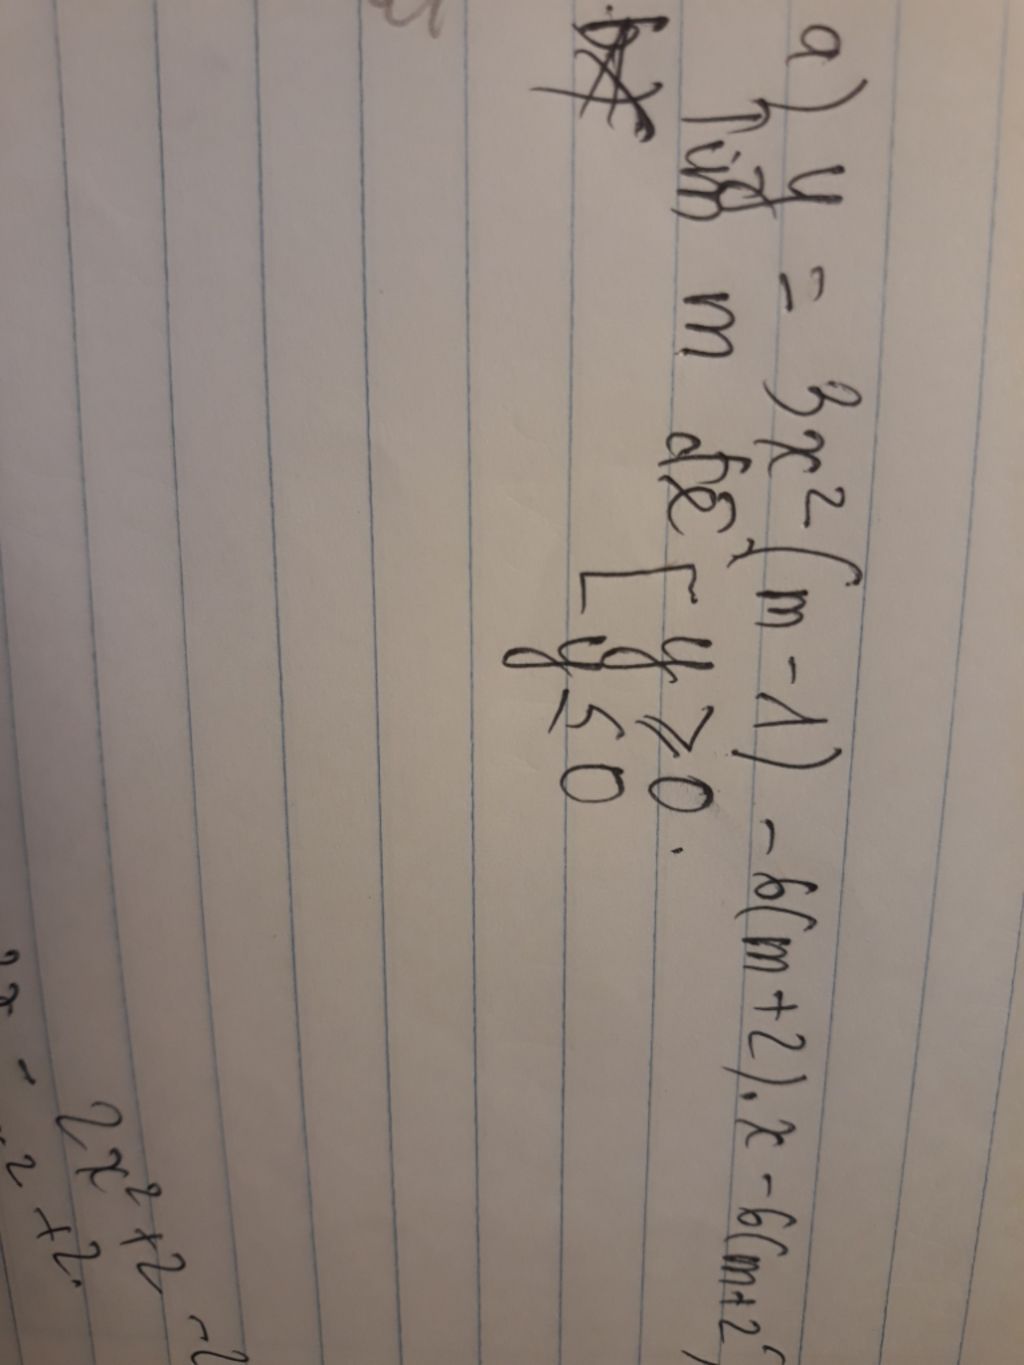 a) y = 3x²(m - 1) - 6(m + 2).x - 6(m + 2)
Tìm m để [ y ⩾ 0.
y ≤ 0
2x² + 2